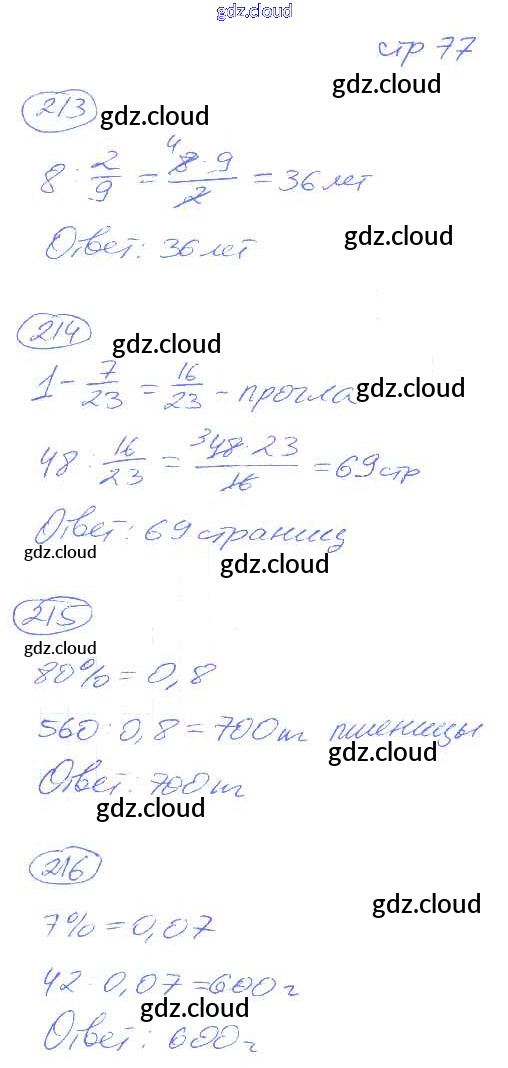 gdz.cloud
стр 77
gdz.cloud
213 gdz.cloud
8 : 2/9 = 4 8·9/2 = 36 лет
Ответ: 36 лет gdz.cloud
214 gdz.cloud
1 - 7/23 = 16/23 - прочла gdz.cloud
48 : 16/23 = 3 48·23/16 = 69 стр
Ответ: 69 страниц
gdz.cloud gdz.cloud
215
gdz.cloud
80% = 0,8
560 : 0,8 = 700 т пшеницы
gdz.cloud
Ответ: 700 т
gdz.cloud
216
gdz.cloud
7% = 0,07
42 : 0,07 = 600 г
gdz.cloud
Ответ: 600 г